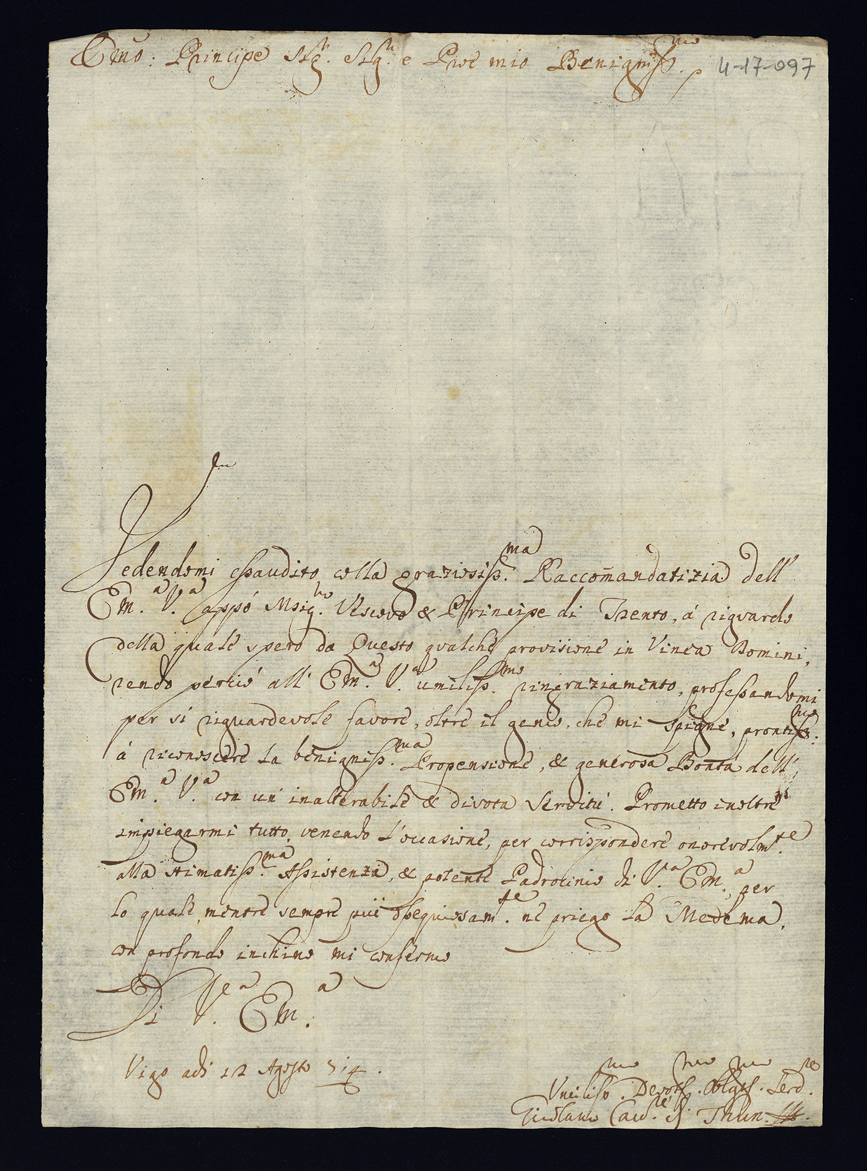 Emo: Principe Sig.r Sig.r e Pre mio Benigniss.mo
4-17-097
Vedendomi essaudito colla graziosiss.ma Raccom̄andatizia dell'
Em.a V.a appó Msig.r Vescovo & Principe di Trento, á riguardo
della quale spero da Questo qualche provisione in Vinea Domini,
rendo perció all' Em.a V.a umiliss.mo ringraziamento, professandomi
per si riguardevole favore, oltre il genio, che mi spigne, prontiss.mo
á riconoscere la benigniss.ma Propensione, & generosa Bontá dell'
Em.a V.a con un' inalterabile & divota Servitú. Prometto inoltre
impiegarmi tutto, venendo l'occasione, per corrispondere onorevolm.te
alla stimatiss.ma Assistenza, & potente Padrocinio di V.a Em.a, per
lo quale, mentre sempre più ossequiosam.te ne priego la Medema,
con profondo inchino mi confermo
Di V.ra Em.a
Vigo adi 12 Agosto 714.
Umiliss.mo Devotss.mo Obligs.mo Serd.re
Cav.re di Thun